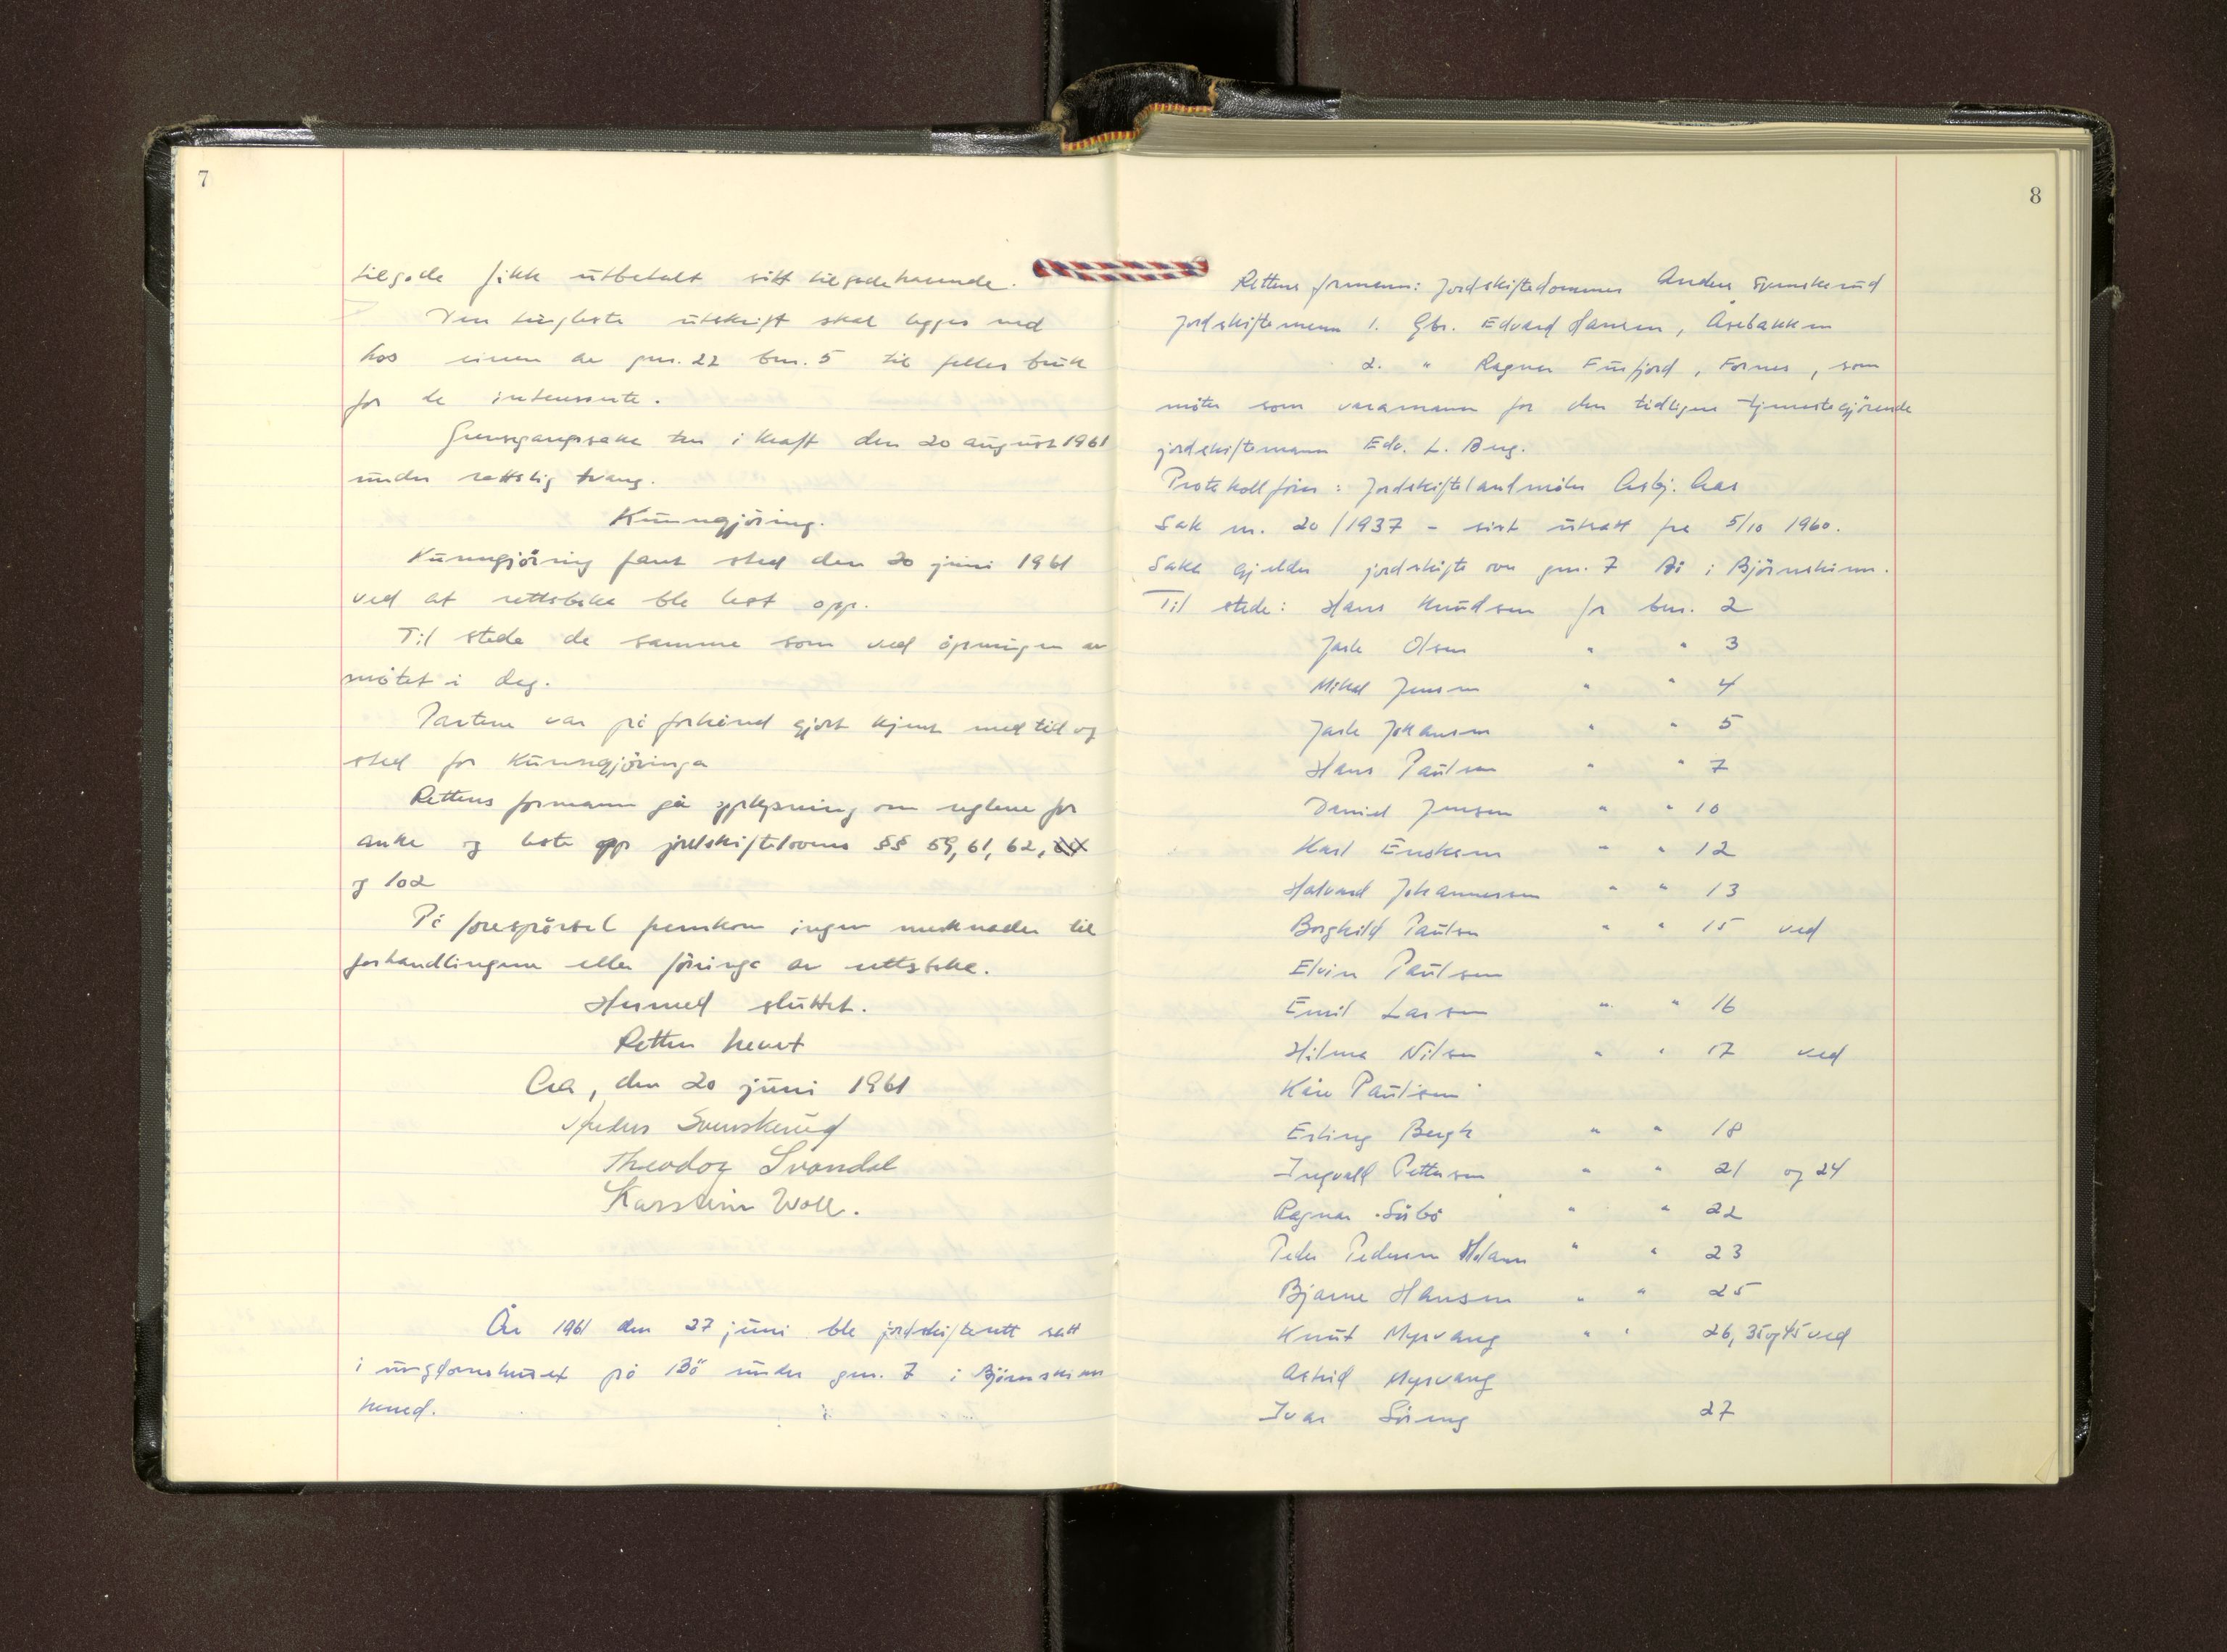 7
tilgode fikk utbetalt sitt tilgodehavende.
Den tinglyste utskrift skal legges ned
hos eieren av gnr. 22 bnr. 5 til felles bruk
for de interesserte.
Grensegangssaka trer i kraft den 20 august 1961
under rettslig tvang.
Kunngjöring.
Kunngjöring fant sted den 20 juni 1961
ved at rettsboka ble lest opp.
Til stede de samme som ved åpningen av
mötet i dag.
Partene var på forhånd gjort kjent med tid og
sted for kunngjöringa
Rettens formann ga opplysning om reglene for
anke og leste opp jordskiftelovens §§ 59, 61, 62,
og 102
På forespörsel fremkom ingen merknader til
forhandlingene eller föringa av rettsboka.
Hermed sluttet.
Retten hevet
Åa, den 20 juni 1961
Anders Svenskerud
Theodor Svandal
Karstein Woll.
År 1961 den 27 juni ble jordskifterett satt
i ungdomshuset på Bö under gnr. 7 i Björnskinn
herred.
8
Rettens formann: Jordskiftedommer Anders Svenskerud
Jordskiftemenn 1. Gbr. Edvard Hansen, Åsebakken
2. " Ragnar Fiusfjord, Fornes, som
möter som varamann for den tidligere tjenestegjörende
jordskiftemann Edv. L. Berg.
Protokollförer: Jordskiftelandmåler Asbj. Aas
Sak nr. 20/1937 - sist utsatt fra 5/10 1960.
Saka gjelder jordskifte over gnr. 7 Bö i Björnskinn.
Til stede: Hans Knudsen for bnr. 2
Jarle Olsen " " 3
Mikal Jensen " " 4
Jarle Johansen " " 5
Hans Paulsen " " 7
Daniel Jensen " " 10
Karl Enoksen " " 12
Halvard Johannessen " " 13
Borghild Paulsen " " 15 ved
Elvin Paulsen
Emil Larsen " " 16
Hilma Nilsen " " 17 ved
Kåre Paulsen
Erling Bergh " " 18
Ingvald Pettersen " " 21 og 24
Ragnar Sörbö " " 22
Peder Pedersen " " 23
Bjarne Hansen " " 25
Knut Myrvang " " 26, 35 og 45 ved
Astrid Myrvang
Ivar Söreng 27